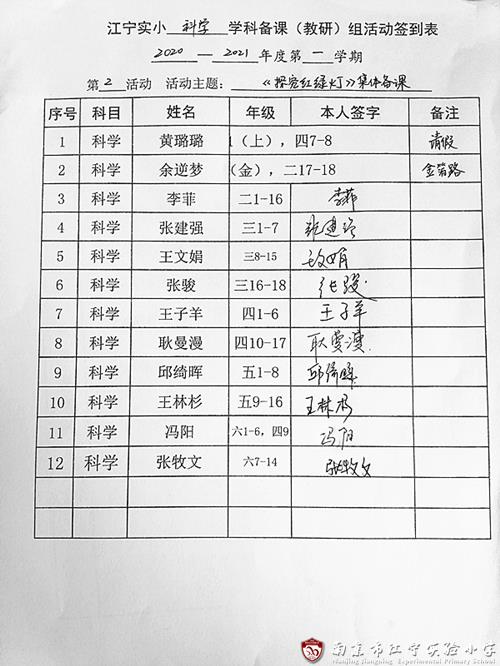 江宁实小 科学 学科备课（教研）组活动签到表
2020 — 2021 年度第 一 学期
第 2 活动 活动主题： 《探究红绿灯》集体备课
序号 科目 姓名 年级 本人签字 备注
1 科学 黄璐璐 1（上），四7-8 请假
2 科学 余逆梦 （金），二17-18 金箔路
3 科学 李菲 二1-16 李菲
4 科学 张建强 三1-7 张建强
5 科学 王文娟 三8-15 文娟
6 科学 张骏 三16-18 张骏
7 科学 王子羊 四1-6 王子羊
8 科学 耿曼漫 四10-17 耿曼漫
9 科学 邱绮晖 五1-8 邱绮晖
10 科学 王林杉 五9-16 王林杉
11 科学 冯阳 六1-6，四9 冯阳
12 科学 张牧文 六7-14 张牧文
南京市江宁实验小学
Nanjing Jiangning Experimental Primary School